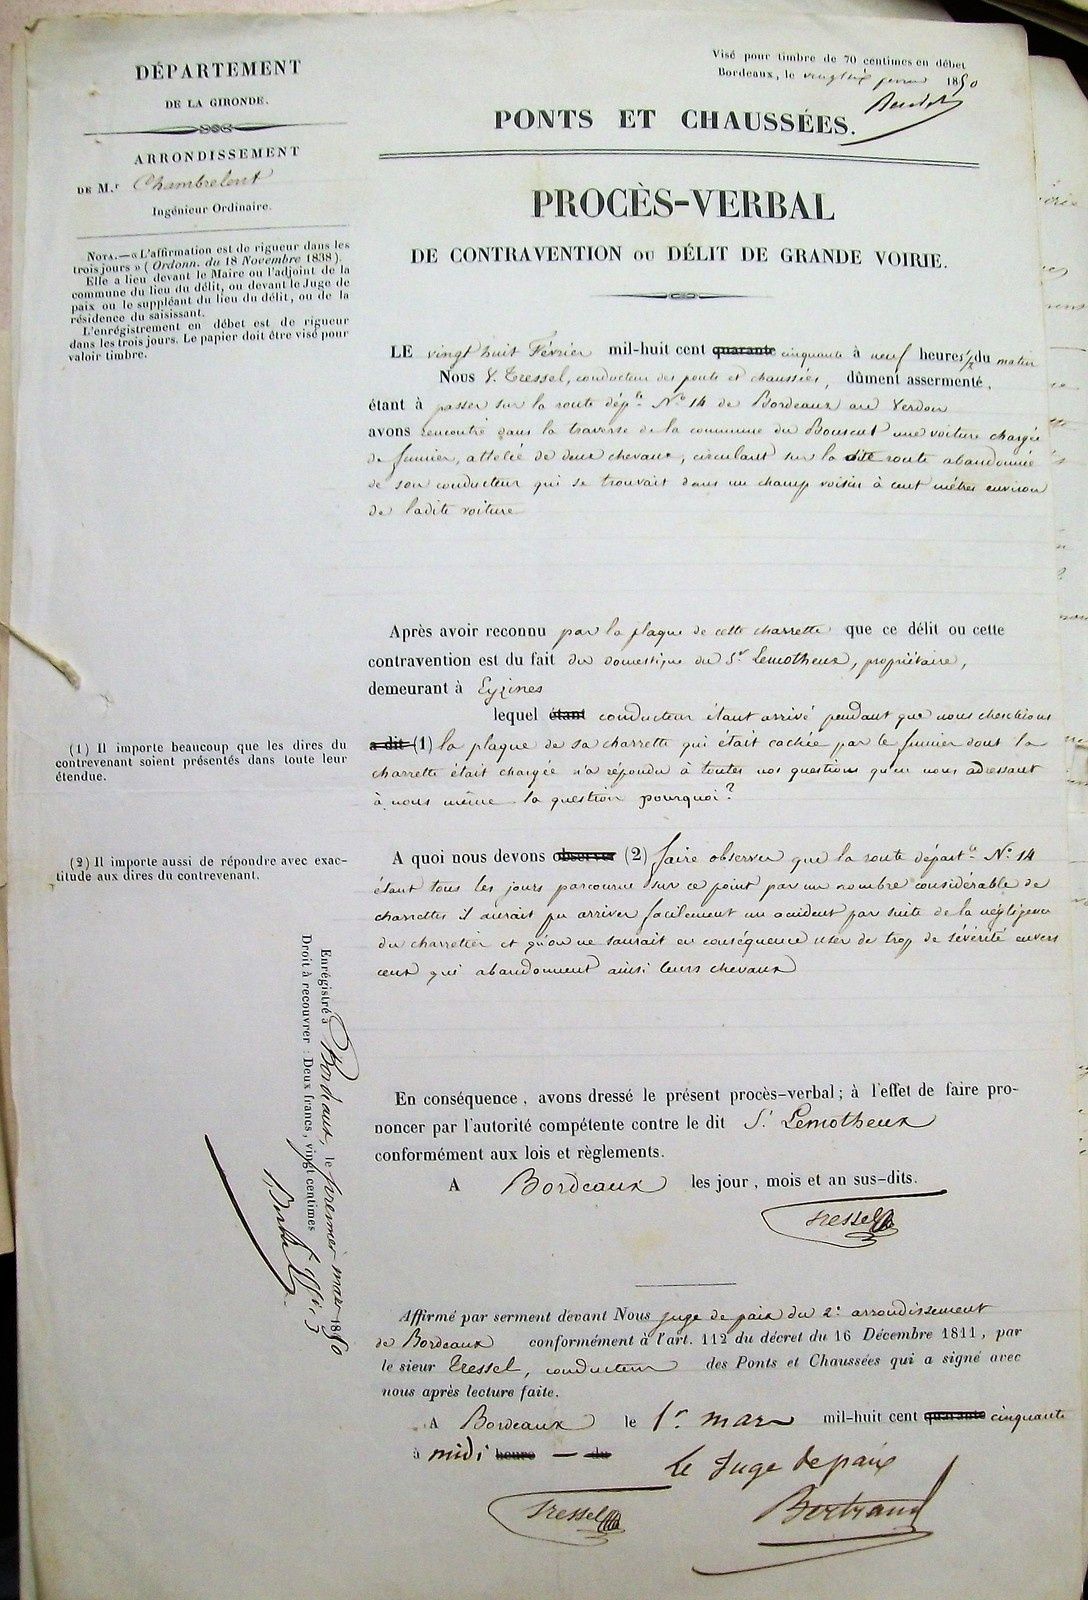 DÉPARTEMENT
DE LA GIRONDE.
ARRONDISSEMENT
DE M.r Chambrelent
Ingénieur Ordinaire.
NOTA.—« L'affirmation est de rigueur dans les
trois jours » (Ordonn. du 18 Novembre 1838).
Elle a lieu devant le Maire ou l'adjoint de la
commune du lieu du délit, ou devant le Juge de
paix ou le suppléant du lieu du délit, ou de la
résidence du saisissant.
L'enrégistrement en débet est de rigueur
dans les trois jours. Le papier doit être visé pour
valoir timbre.
Visé pour timbre de 70 centimes en débet
Bordeaux, le février 1850
PONTS ET CHAUSSÉES.
PROCÈS-VERBAL
DE CONTRAVENTION OU DÉLIT DE GRANDE VOIRIE.
LE vingt huit Février mil-huit cent quarante cinquante à neuf heures 1/2 du matin
Nous V. Tressel, conducteur des ponts et chaussées, dûment assermenté,
étant à passer sur la route dép.le N.o 14 de Bordeaux au Verdon
avons rencontré dans la traverse de la commune du Bouscat une voiture chargée
de fumier, attelée de deux chevaux, circulant sur la dite route abandonnée
de son conducteur qui se trouvait dans un champ voisin à cent mètres environ
de ladite voiture
Après avoir reconnu par la plaque de cette charrette que ce délit ou cette
contravention est du fait du domestique du S.r Lemotheux, propriétaire,
demeurant à Eyzines
lequel étant conducteur étant arrivé pendant que nous cherchions
a dit (1) la plaque de sa charrette qui était cachée par le fumier dont la
charrette était chargée n'a répondu à toutes nos questions qu'en nous adressant
à nous même la question pourquoi ?
(1) Il importe beaucoup que les dires du
contrevenant soient présentés dans toute leur
étendue.
(2) Il importe aussi de répondre avec exac-
titude aux dires du contrevenant.
A quoi nous devons observer (2) faire observer que la route départ.le N.o 14
étant tous les jours parcourue sur ce point par un nombre considérable de
charrettes il aurait pu arriver facilement un accident par suite de la négligence
du charretier et qu'on ne saurait en conséquence user de trop de sévérité envers
ceux qui abandonnent ainsi leurs chevaux
Enrégistré à Bordeaux, le premier mars 1850
Droit à recouvrer : Deux francs, vingt centimes
En conséquence, avons dressé le présent procès-verbal ; à l'effet de faire pro-
noncer par l'autorité compétente contre le dit S.r Lemotheux
conformément aux lois et règlements.
A Bordeaux les jour, mois et an sus-dits.
Tressel
Affirmé par serment devant Nous juge de paix du 2e arrondissement
de Bordeaux conformément à l'art. 112 du décret du 16 Décembre 1811, par
le sieur Tressel, conducteur des Ponts et Chaussées qui a signé avec
nous après lecture faite.
A Bordeaux le 1.r mars mil-huit cent quarante cinquante
à midi heure — du
Le Juge de paix
Tressel
Bertrand